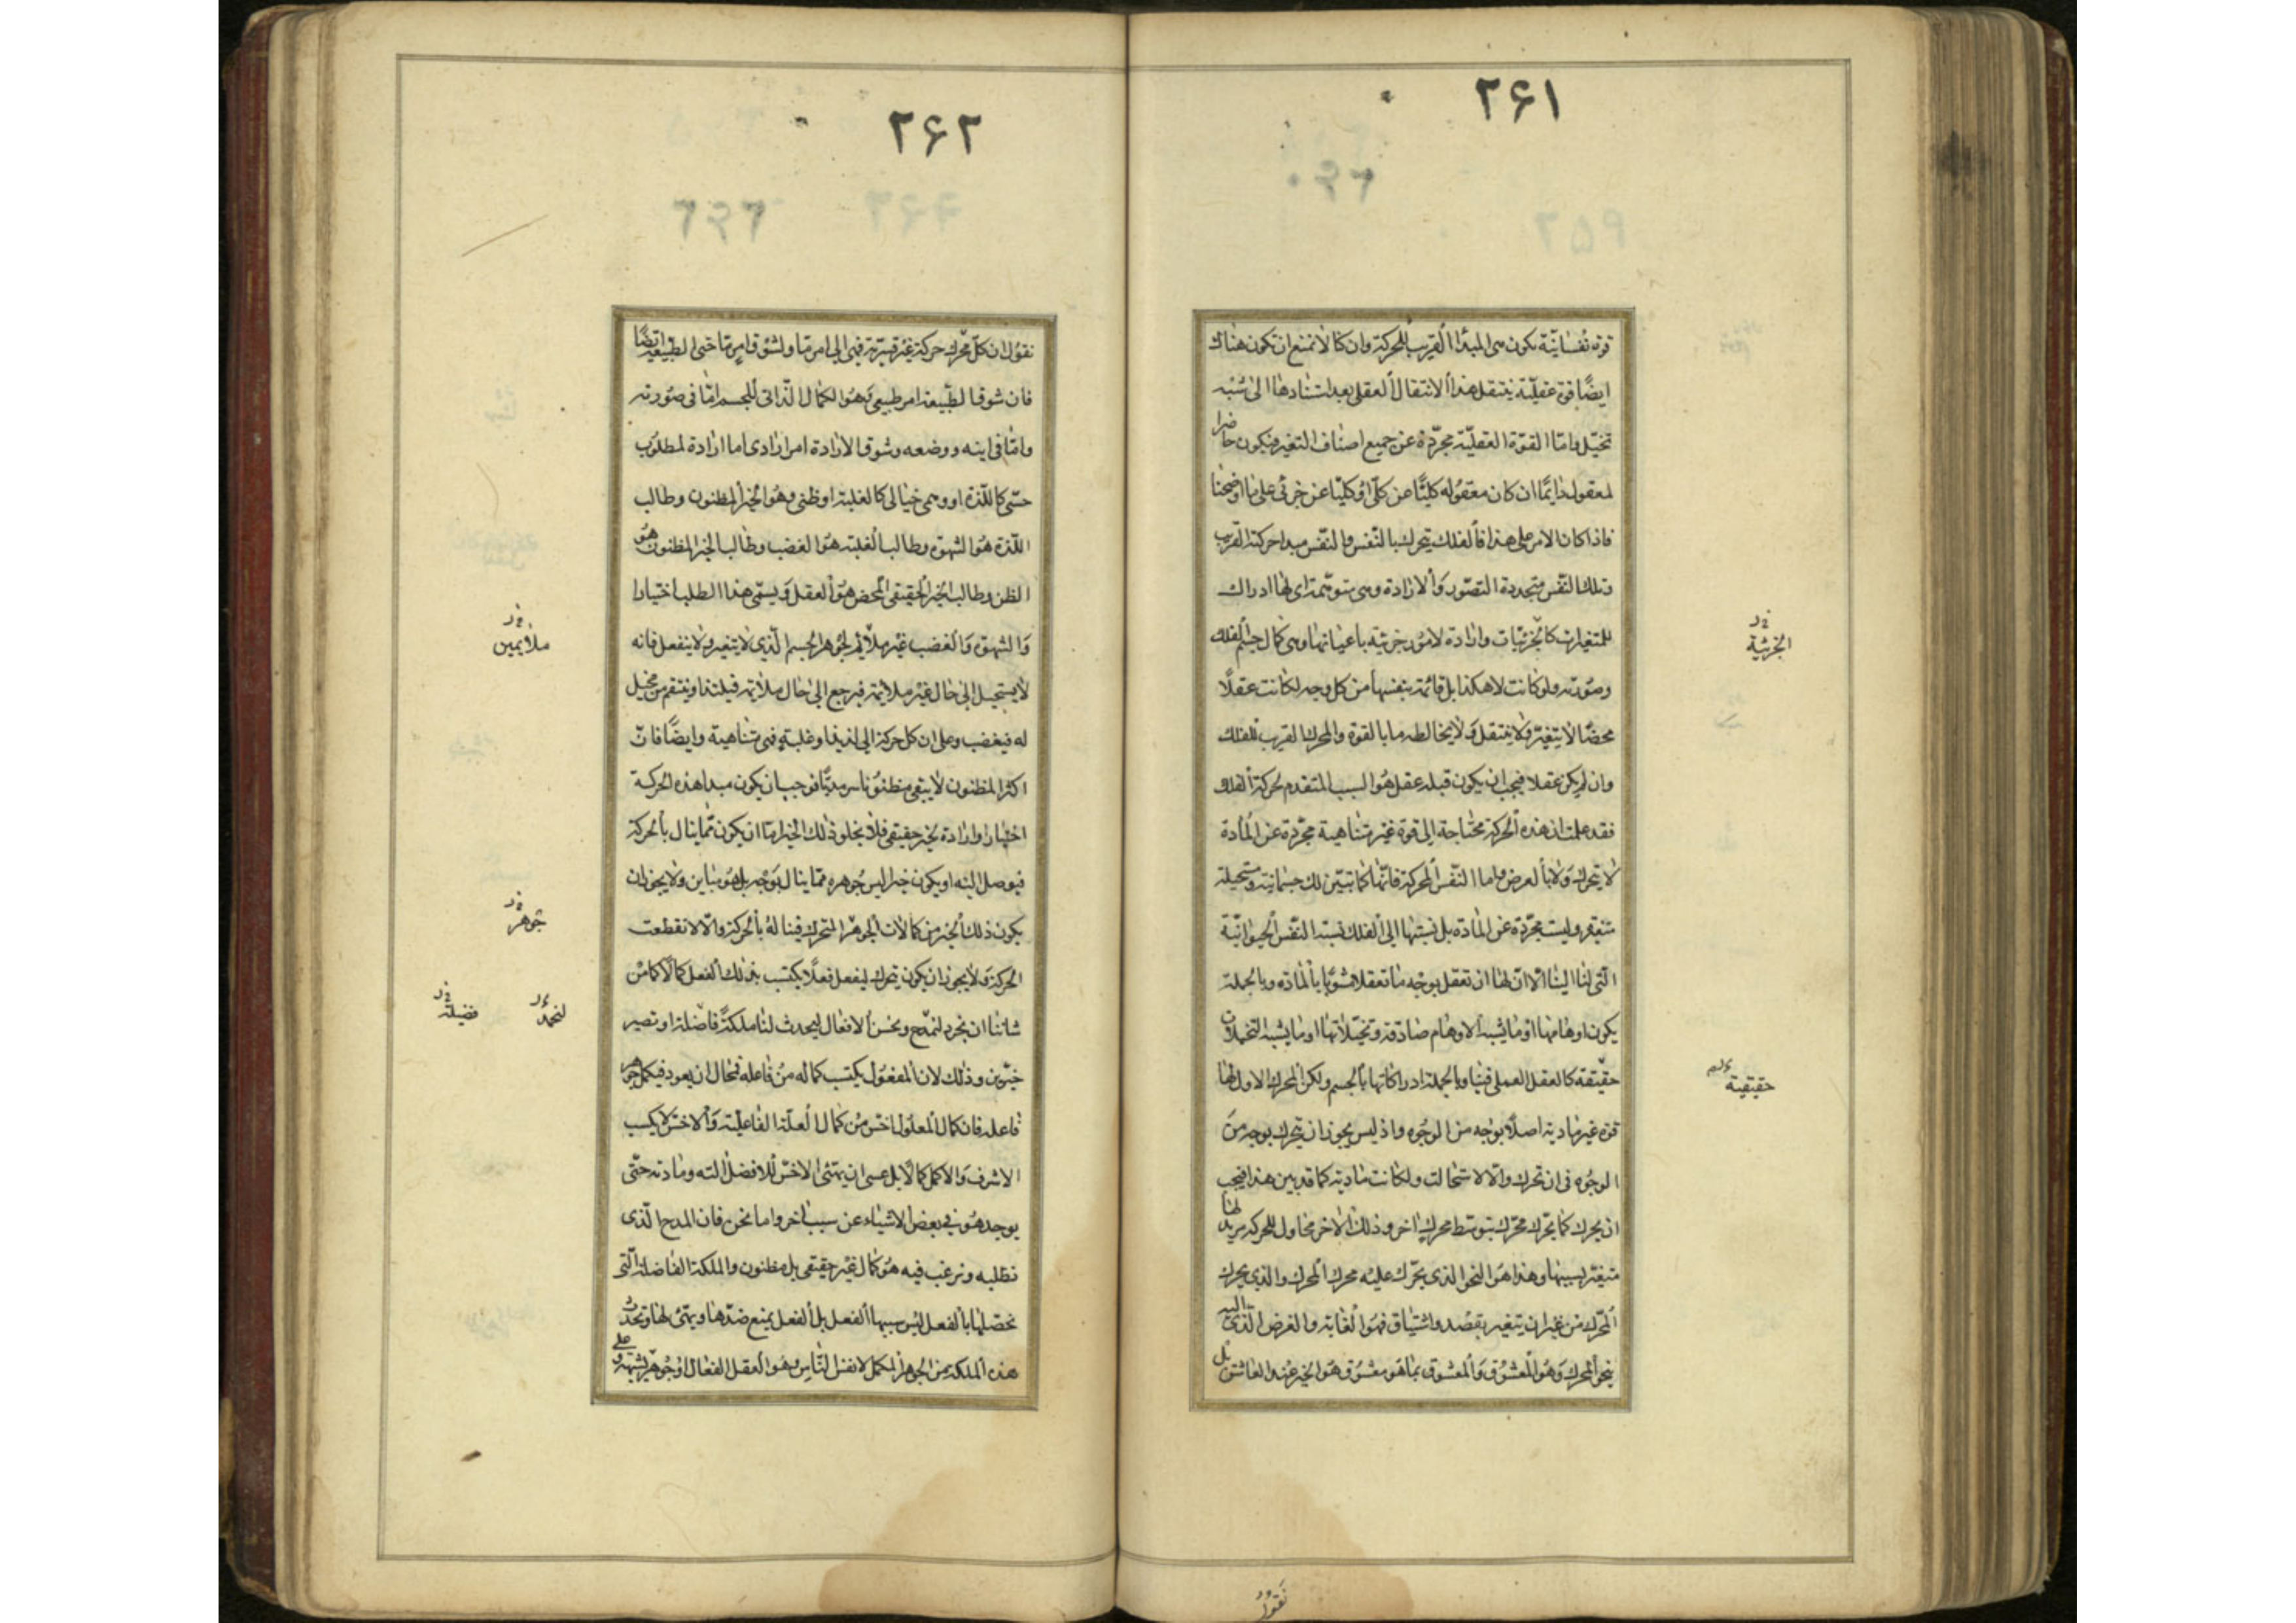 ۲۶۱
قوة نفسانية تكون هى المبدأ القريب للحركة وان كنا لا نمنع ان تكون هناك
ايضًا قوة عقلية ينتقل هذا الانتقال العقلى بعد استنادها الى شبه
تخيّل واما القوة العقلية مجرّدة عن جميع اصناف التغير فيكون حاضرا
لمعقول دايمًا ان كان معقوله كليًّا عن كلّى او كليًّا عن جزئى على ما اوضحنا
فاذا كان الامر على هذا فالفلك يتحرك بالنفس والنفس مبدا حركته القريب
وتلك النفس متجددة التصوّر والارادة وهى متوهّمة اى لها ادراك
للمتغيرات كالجزئيات وارادة لامور جزئية باعيانها وهى كمال جسم الفلك
وصورته ولو كانت لا هكذا بل قائمة بنفسها من كل وجه لكانت عقلًا
محضًا لا يتغيّر ولا ينتقل ولا يخالطه ما بالقوة والمحرك القريب للفلك
وان لم يكن عقلا فيجب ان يكون قبله عقل هو السبب المتقدم لحركة الفلك
فقد علمت ان هذه الحركة محتاجة الى قوة غير متناهية مجرّدة عن المادة
لا يتحرك ولا بالعرض واما النفس المحركة فانّها كما تبيّن لك جسمانية ومستحيلة
متغيرة وليست مجرّدة عن المادة بل نسبتها الى الفلك نسبة النفس الحيوانيّة
التى لنا الينا الا ان لها ان تعقل بوجه ما تعقلا مشوبًا بالمادة وبالجملة
يكون اوهامها او ما يشبه الاوهام صادقة وتخيّلاتها او ما يشبه التخيلات
حقيقة كالعقل العملى فينا وبالجملة ادراكاتها بالجسم ولكن المحرك الاول لها
قوة غير مادية اصلًا بوجه من الوجوه واذ ليس يجوز ان يتحرك بوجه من
الوجوه فى ان تحرك والا لاستحالت ولكانت مادية كما قد بين هذا فيجب
ان يحرك كما يحرّك محرّك بتوسط محرك اخر وذلك الاخر محاول للحركة مريد لها
متغيّر بسببها وهذا هو النحو الذى يحرّك عليه محرك المحرك والذى يحرك
المحرك من غير ان يتغير بقصد واشتياق فهو الغاية والغرض الذى اليه
ينحو المحرك وهو المعشوق والمعشوق بما هو معشوق هو الخير عند العاشق بل
الجزئية
حقيقية
نقول
۲۶۲
نقول ان كلّ محرك حركة غير قسرية فهى الى امر ما ولشوق امر ما حتى الطبيعة ايضًا
فان شوق الطبيعة امر طبيعى وهو الكمال الذاتى للجسم امّا فى صورته
وامّا فى اينه ووضعه وشوق الارادة امر ارادى اما ارادة لمطلوب
حسّى كاللذة او وهمى خيالى كالغلبة او ظنى وهو الخير المظنون وطالب
اللذة هو الشهوة وطالب الغلبة هو الغضب وطالب الخير المظنون هو
الظن وطالب الخير الحقيقى المحض هو العقل ويسمّى هذا الطلب اختيارا
والشهوة والغضب غير ملائم لجوهر الجسم الّذى لا يتغير ولا ينفعل فانه
لا يستحيل الى حال غير ملائمة فيرجع الى حال ملائمة فيلتذ او ينتقم من مخيل
له فيغضب وعلى ان كل حركة الى لذيذ او غلبة فهى متناهية وايضًا فان
اكثر المظنون لا يبقى مظنونا سرمديًّا فوجب ان يكون مبدا هذه الحركة
اختيارا وارادة لخير حقيقى فلا يخلو ذلك الخير امّا ان يكون ممّا ينال بالحركة
فيوصل اليه او يكون خيرا ليس جوهره ممّا ينال بوجه بل هو مباين ولا يجوز ان
يكون ذلك الخير من كمالات الجوهر المتحرك فيناله بالحركة والّا لانقطعت
الحركة ولا يجوز ان يكون يتحرك ليفعل فعلًا يكتسب بذلك الفعل كمالًا كما من
شاننا ان نجود لنمدح ونحسن الافعال ليحدث لنا ملكة فاضلة او نصير
خيّرين وذلك لان المفعول يكتسب كماله من فاعله فمحال ان يعود فيكمل جوهر
فاعله فان كمال المعلول اخسّ من كمال العلّة الفاعلية والاخسّ لا يكسب
الاشرف والاكمل كمالًا بل عسى ان يهيّئ الاخسّ للافضل الته ومادته حتّى
يوجد هو فى بعض الاشياء عن سبب اخر واما نحن فان المدح الّذى
نطلبه ونرغب فيه هو كمال غير حقيقى بل مظنون والملكة الفاضلة الّتى
نحصّلها بالفعل ليس سببها الفعل بل الفعل يمنع ضدّها ويهيّئ لها وتحدث
هذه الملكة من الجوهر المكمل لانفس النّاس وهو العقل الفعال او جوهر يشبهه وعلى
ملائمين
جوهر
لنحمد
فضيلة